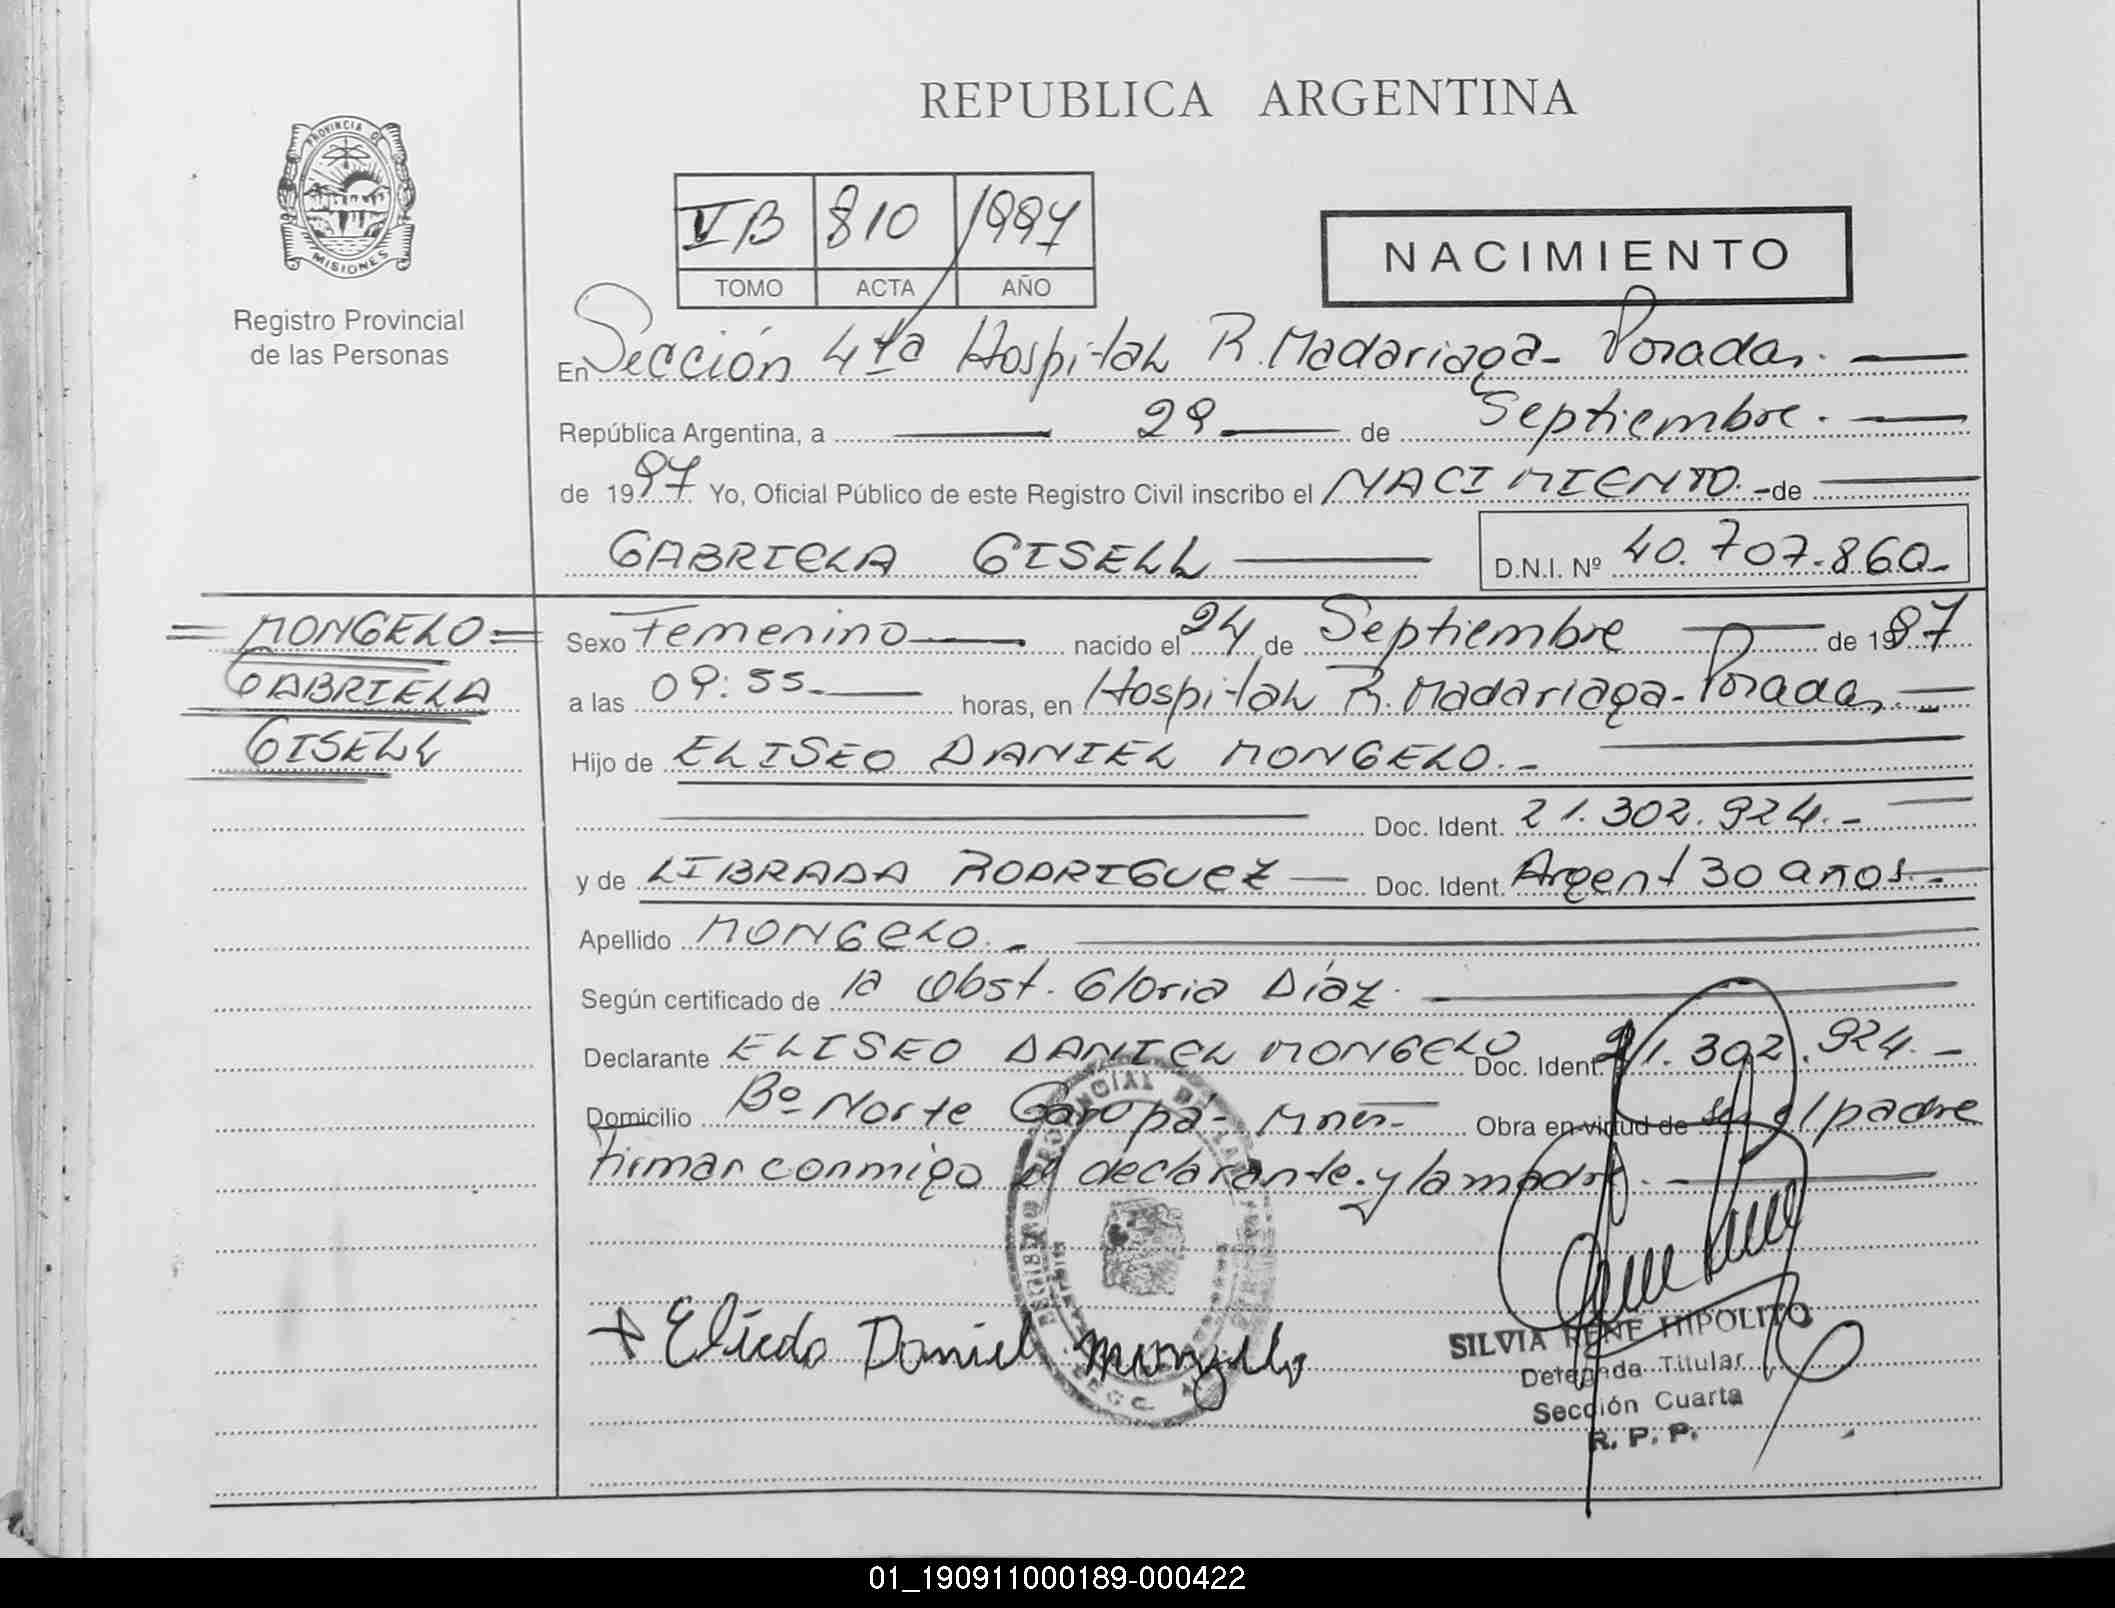 REPUBLICA ARGENTINA
PROVINCIA DE
MISIONES
Registro Provincial
de las Personas
VB 810 1997
TOMO ACTA AÑO
NACIMIENTO
En Sección 4ta Hospital R. Madariaga - Posadas. —
República Argentina, a — 29 — de Septiembre. —
de 1997 Yo, Oficial Público de este Registro Civil inscribo el NACIMIENTO. - de —
GABRIELA GISELL —
D.N.I. Nº 40.707.860-
= MONGELO =
GABRIELA
GISELL
Sexo Femenino — nacido el 24 de Septiembre — de 1997
a las 09:55. — horas, en Hospital R. Madariaga - Posadas. —
Hijo de ELISEO DANIEL MONGELO. - —
— Doc. Ident. 21.302.924. - —
y de LIBRADA RODRIGUEZ — Doc. Ident. Argent 30 años. -
Apellido MONGELO. - —
Según certificado de la Obst. Gloria Díaz. —
Declarante ELISEO DANIEL MONGELO Doc. Ident. 21.302.924. -
Domicilio Bº Norte Garupá - Mnes - Obra en virtud de ser el padre
Firman conmigo el declarante. y la madre. - —
REGISTRO PROVINCIAL DE LAS
+ Eliedo Daniel Mongelo
SILVIA RENE HIPOLITO
Delegada Titular
Sección Cuarta
R. P. P.
01_190911000189-000422